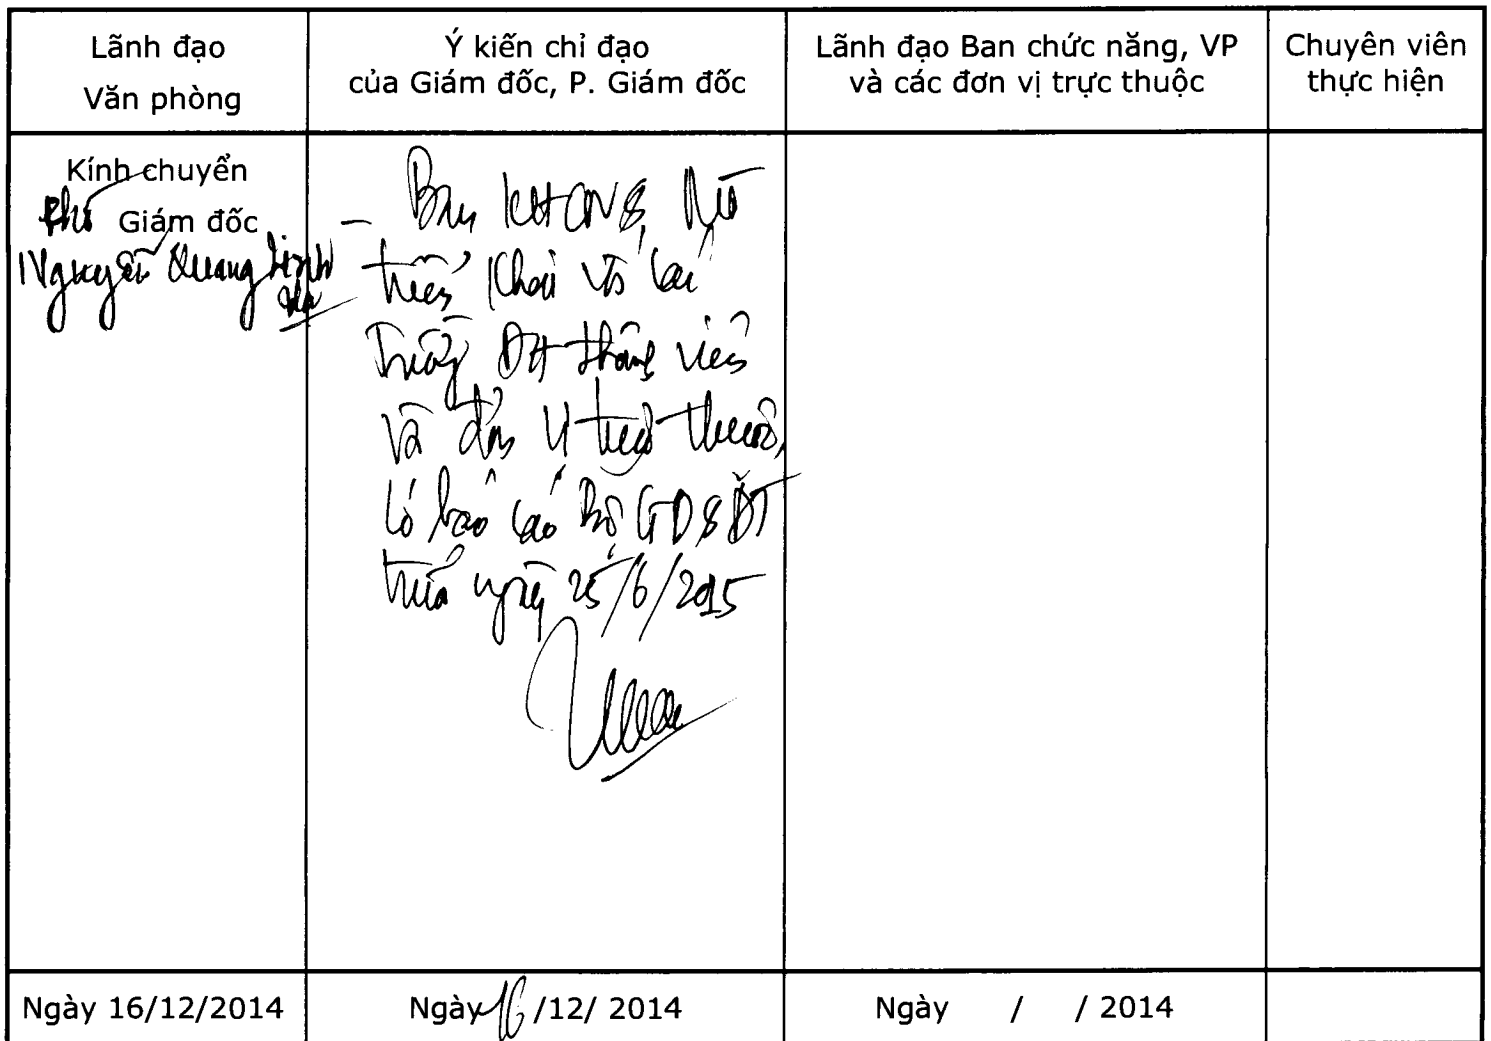 Lãnh đạo
Văn phòng
Ý kiến chỉ đạo
của Giám đốc, P. Giám đốc
Lãnh đạo Ban chức năng, VP
và các đơn vị trực thuộc
Chuyên viên
thực hiện
Kính chuyển
Phó Giám đốc
Nguyễn Quang Linh
- Ban KHCN&
triển khai tới các
trường ĐH thành viên
và đơn vị trực thuộc,
có báo cáo Bộ GD&ĐT
trước ngày 25/6/2015
Ngày 16/12/2014
Ngày 16/12/ 2014
Ngày / / 2014